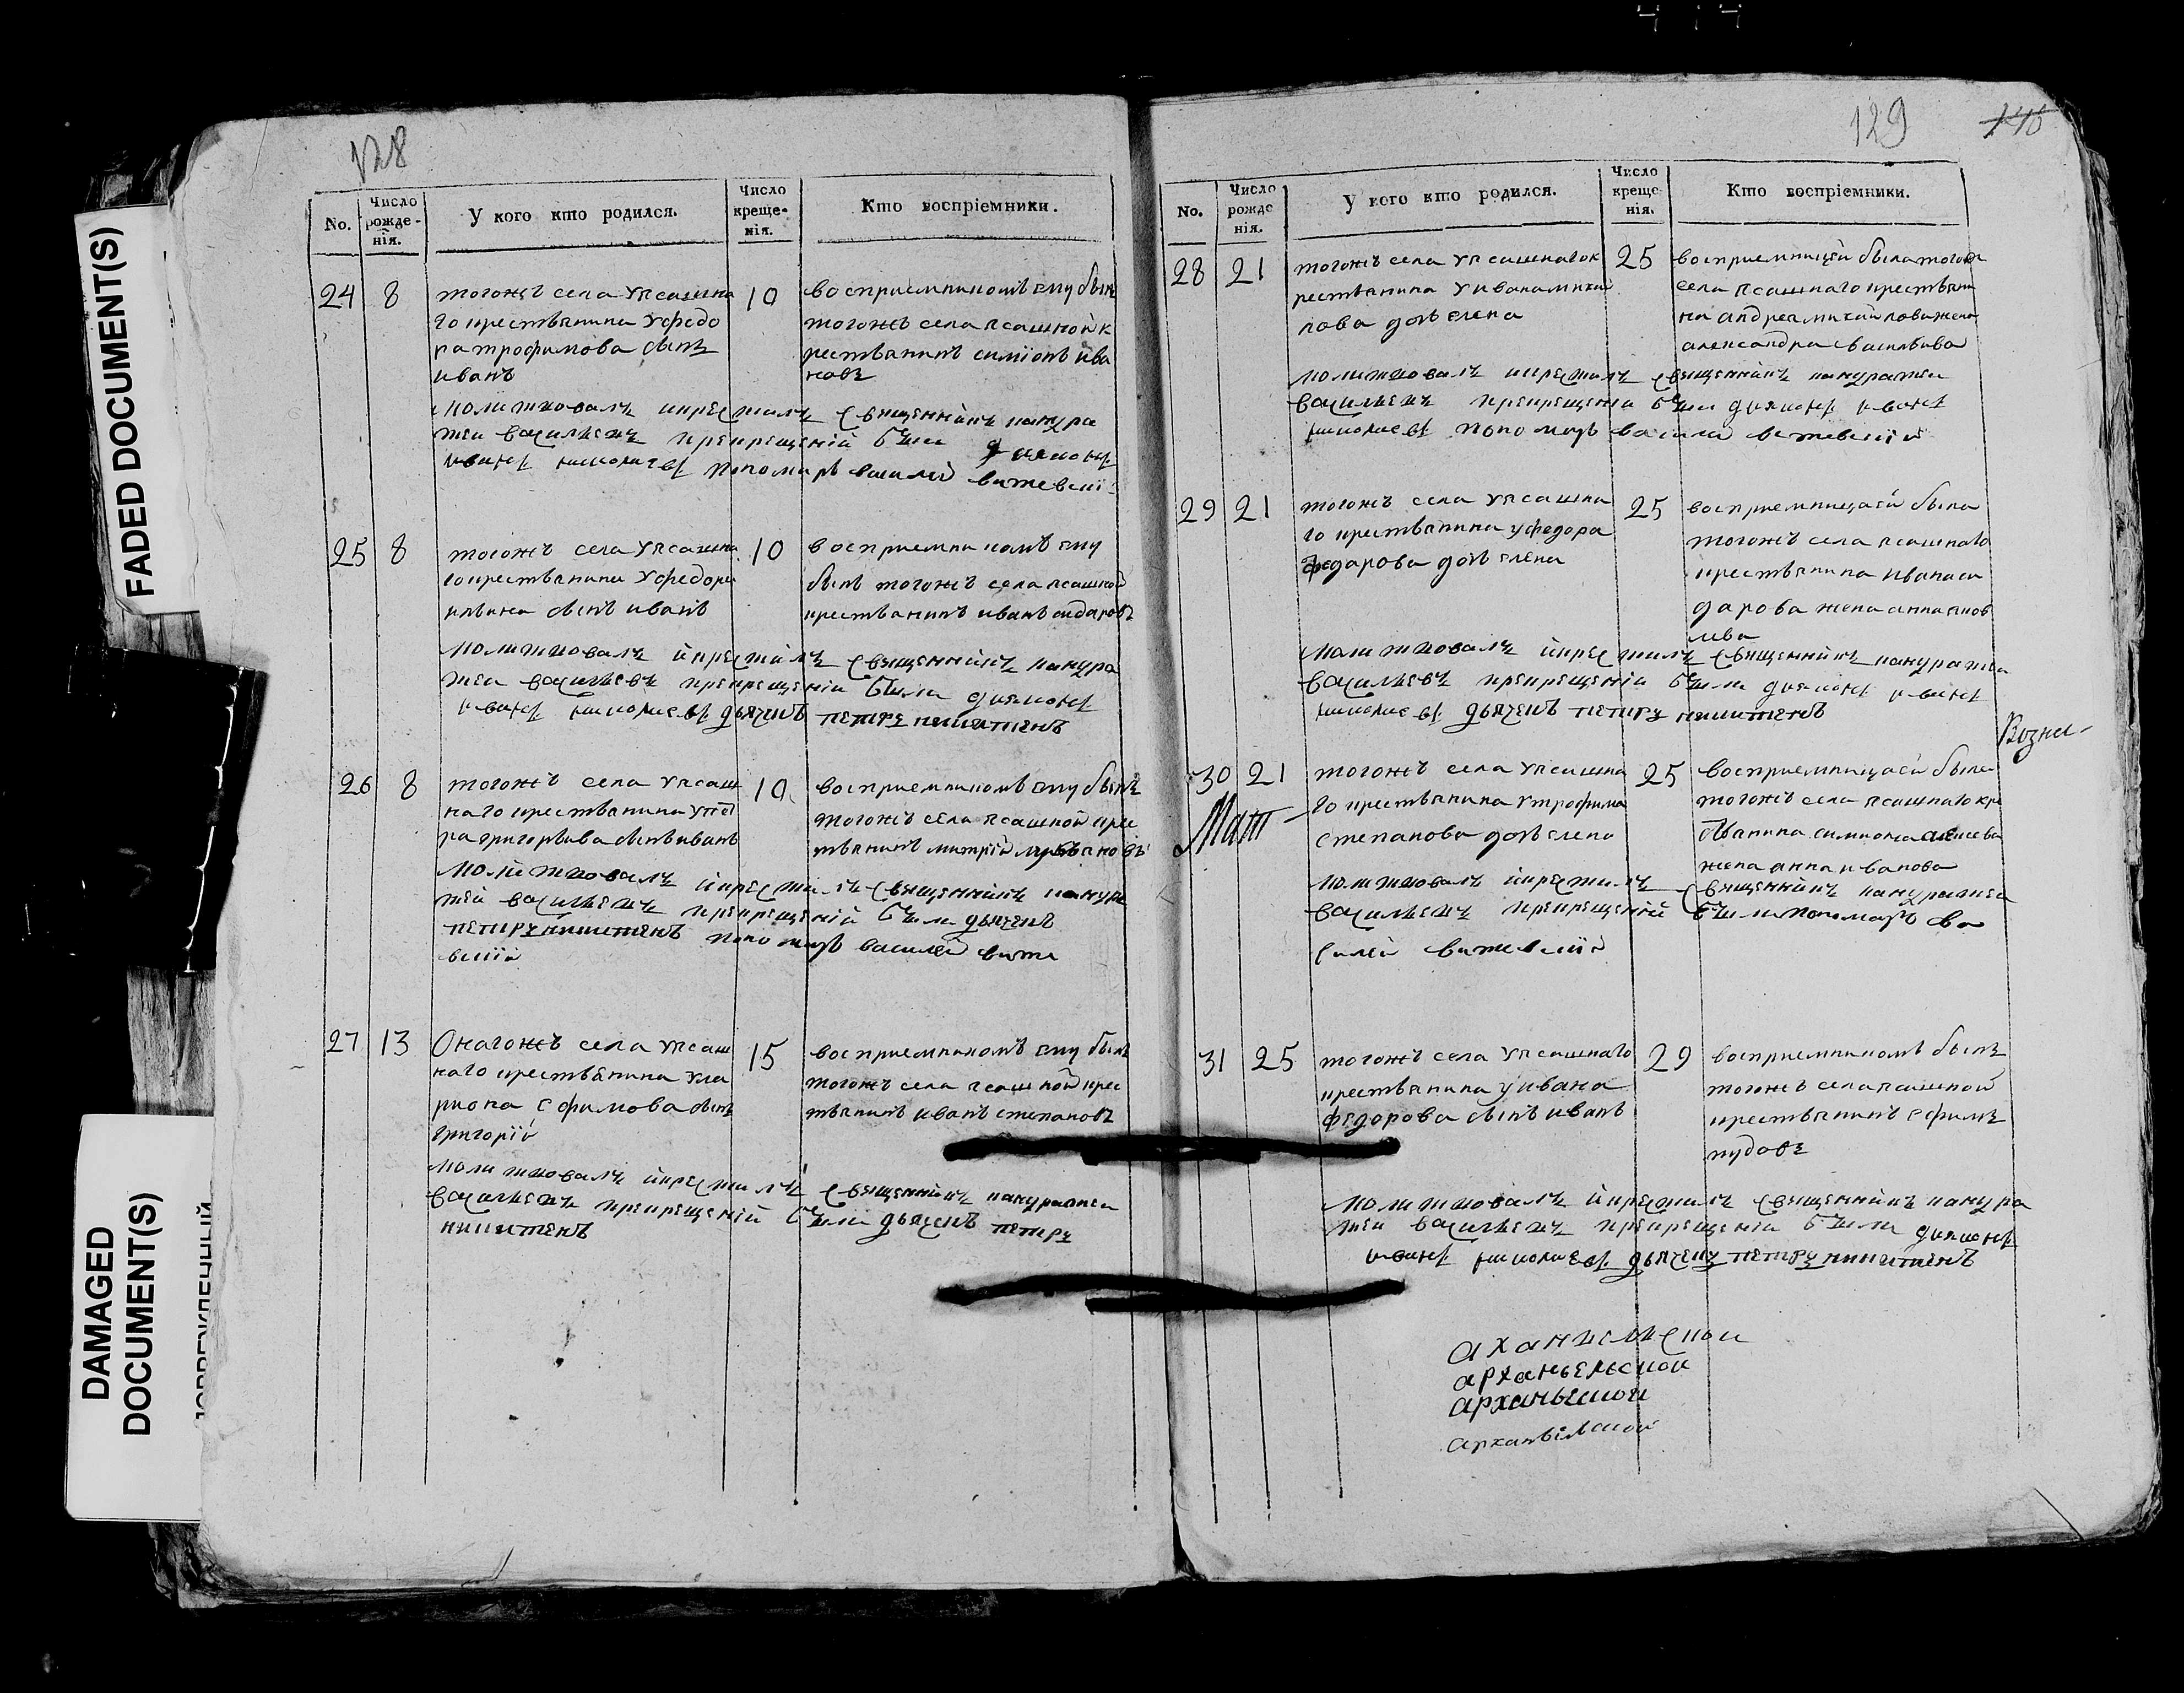 FADED DOCUMENT(S)
DAMAGED
DOCUMENT(S)
128
No.
Число
рожде-
нія.
У кого кто родился.
Число
креще-
нія.
Кто воспріемники.
24
8
тогожъ села упсашна
го крестьянина уфедо
ра трофимова сынъ
иванъ
10
восприемникомъ ему былъ
тогожъ села псашной к
рестьянинъ симионъ ива
новъ
молитвовалъ икрестилъ священникъ кандра
тей васильевъ прикрещении были диаконъ
иванъ николаевъ пономарь василей
25
8
тогожъ села упсашна
го крестьянина уфедора
ильина сынъ иванъ
10
восприемникомъ ему
былъ тогожъ села псашной
крестьянинъ иванъ сидаровъ
молитвовалъ икрестилъ священникъ кандра
теи васильевъ прикрещении были диаконъ
иванъ николаевъ дьячекъ петръ никитинъ
26
8
тогожъ села упсаш
наго крестьянина упет
ра григорьива сынъ иванъ
10
восприемникомъ ему былъ
тогожъ села псашной крес
тьянинъ митрий
молитвовалъ икрестилъ священникъ кандра
тей васильевъ прикрещении были дьячекъ
петръ никитинъ пономарь василей
27
13
Онагожъ села упсаш
наго крестьянина ула
риона ефимова сынъ
григорій
15
восприемникомъ ему былъ
тогожъ села псашной крес
тьянинъ иванъ степановъ
молитвовалъ икрестилъ священникъ кандратеи
васильевъ прикрещении были дьячекъ петръ
никитинъ
129
No.
Число
рожде
нія.
У кого кто родился.
Число
креще-
нія.
Кто воспріемники.
28
21
тогожъ села упсашнаго к
рестьянина уивана михаи
лова дочь елена
25
восприемницей была тогожъ
села псашнаго крестьяни
на андрея михайлова жена
александра васильива
молитвовалъ икрестилъ священникъ кандратеи
васильевъ прикрещении были диаконъ иванъ
николаевъ пономарь василей
29
21
тогожъ села упсашна
го крестьянина уфедора
федарова дочь елена
25
восприемницаей была
тогожъ села псашнаго
крестьянина ивана си
дарова жена анна яков
лива
молитвовалъ икрестилъ священникъ кандратеи
васильевъ прикрещении были диаконъ иванъ
николаевъ дьячекъ петръ никитинъ
30
21
тогожъ села упсашна
го крестьянина утрофима
степанова дочь елена
25
восприемницаей была
тогожъ села псашнаго кре
стьянина симиона
жена анна иванова
молитвовалъ икрестилъ священникъ кандратеи
васильевъ прикрещении были пономарь ва
силей
31
25
тогожъ села упсашнаго
крестьянина уивана
федорова сынъ иванъ
29
восприемникомъ былъ
тогожъ села псашной
крестьянинъ ефимъ
нудовъ
молитвовалъ икрестилъ священникъ кандра
теи васильевъ прикрещении были диаконъ
иванъ николаевъ дьячекъ петръ никитинъ
арханьельской